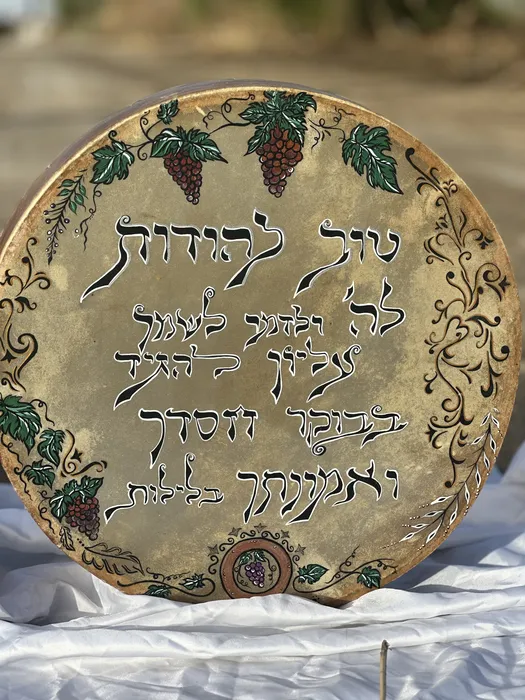 טוב להודות
לה' ולזמר לשמך
עליון להגיד
בבוקר חסדך
ואמונתך בלילות